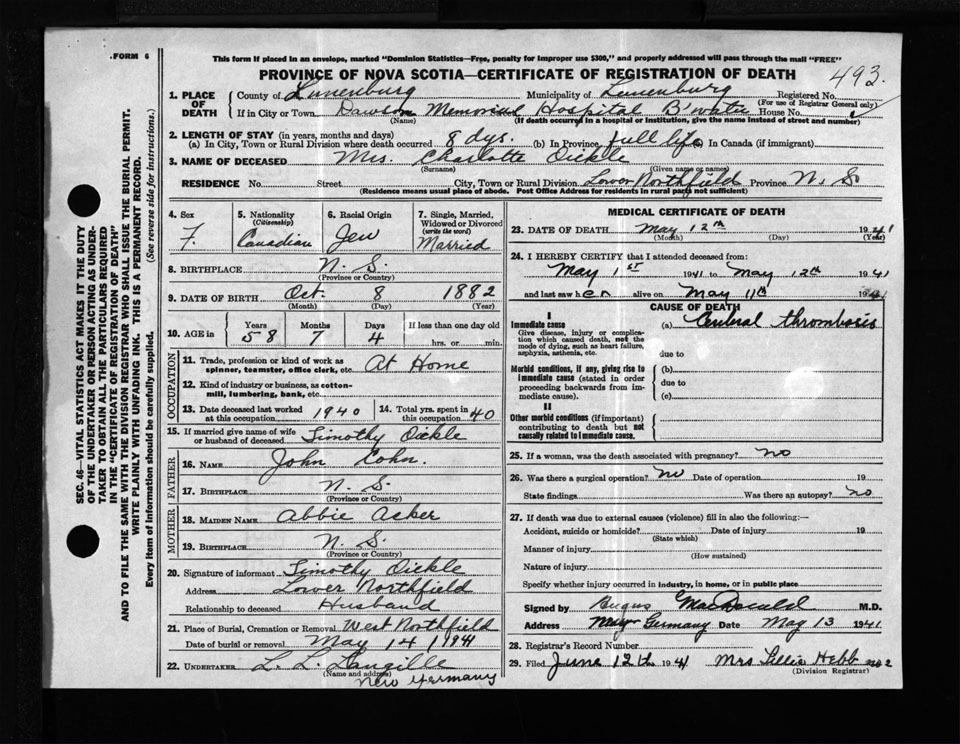 FORM 6
This form if placed in an envelope, marked "Dominion Statistics—Free, penalty for improper use $300," and properly addressed will pass through the mail "FREE"
PROVINCE OF NOVA SCOTIA—CERTIFICATE OF REGISTRATION OF DEATH
493.
1. PLACE OF DEATH
County of Lunenburg Municipality of Lunenburg Registered No.
(For use of Registrar General only)
If in City or Town Dawson Memorial Hospital B'water House No.
(Name) (If death occurred in a hospital or institution, give the name instead of street and number)
2. LENGTH OF STAY (in years, months and days)
(a) In City, Town or Rural Division where death occurred 8 dys. (b) In Province full life (c) In Canada (if immigrant)
3. NAME OF DECEASED Mrs. Charlotte Oickle
(Surname) (Given name or names)
RESIDENCE No. Street City, Town or Rural Division Lower Northfield Province N. S.
(Residence means usual place of abode. Post Office Address for residents in rural parts not sufficient)
4. Sex F.
5. Nationality (Citizenship) Canadian
6. Racial Origin Jew
7. Single, Married, Widowed or Divorced (write the word) Married
8. BIRTHPLACE N. S.
(Province or Country)
9. DATE OF BIRTH Oct. 8 1882
(Month) (Day) (Year)
10. AGE in Years 58 Months 7 Days 4 If less than one day old hrs. or min.
OCCUPATION
11. Trade, profession or kind of work as spinner, teamster, office clerk, etc. At Home
12. Kind of industry or business, as cotton-mill, lumbering, bank, etc.
13. Date deceased last worked at this occupation 1940
14. Total yrs. spent in this occupation 40
15. If married give name of wife or husband of deceased Timothy Oickle
FATHER
16. NAME John Cohn.
17. BIRTHPLACE N. S.
(Province or Country)
MOTHER
18. MAIDEN NAME Abbie Acker
19. BIRTHPLACE N. S.
(Province or Country)
20. Signature of informant Timothy Oickle
Address Lower Northfield
Relationship to deceased Husband
21. Place of Burial, Cremation or Removal West Northfield
Date of burial or removal May 14 1941
22. UNDERTAKER L. L. Langille
(Name and address)
New Germany
MEDICAL CERTIFICATE OF DEATH
23. DATE OF DEATH May 12th 1941
(Month) (Day) (Year)
24. I HEREBY CERTIFY that I attended deceased from:
May 1st 1941 to May 12th 1941
and last saw her alive on May 11th 1941
CAUSE OF DEATH
I
Immediate cause
Give disease, injury or complication which caused death, not the mode of dying, such as heart failure, asphyxia, asthenia, etc.
(a) Cerebral thrombosis
due to
Morbid conditions, if any, giving rise to immediate cause (stated in order proceeding backwards from immediate cause)
(b)
due to
(c)
II
Other morbid conditions (if important) contributing to death but not causally related to immediate cause.
25. If a woman, was the death associated with pregnancy? no
26. Was there a surgical operation? no Date of operation 19
State findings Was there an autopsy? no
27. If death was due to external causes (violence) fill in also the following:—
Accident, suicide or homicide? Date of injury 19
(State which)
Manner of injury
(How sustained)
Nature of injury
Specify whether injury occurred in industry, in home, or in public place
Signed by Angus MacDonald M.D.
Address New Germany Date May 13 1941
28. Registrar's Record Number
29. Filed June 12th 1941 Mrs Lillie Hebb
(Division Registrar)
SEC. 46—VITAL STATISTICS ACT MAKES IT THE DUTY
OF THE UNDERTAKER OR PERSON ACTING AS UNDER-
TAKER TO OBTAIN ALL THE PARTICULARS REQUIRED
IN THE "CERTIFICATE OF REGISTRATION OF DEATH"
AND TO FILE THE SAME WITH THE DIVISION REGISTRAR WHO SHALL ISSUE THE BURIAL PERMIT.
WRITE PLAINLY WITH UNFADING INK. THIS IS A PERMANENT RECORD.
Every item of information should be carefully supplied. (See reverse side for instructions.)